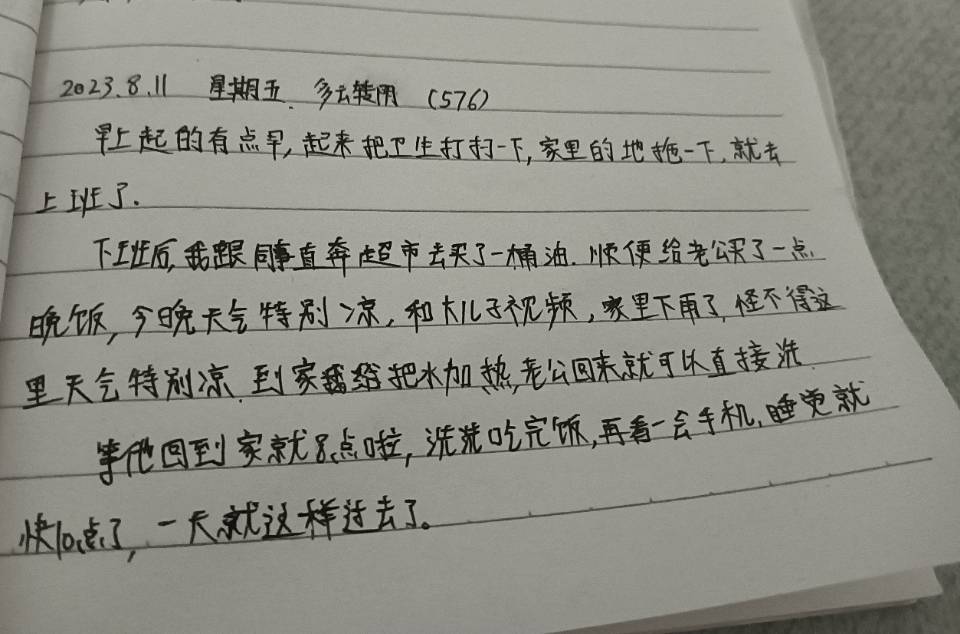 2023.8.11 星期五. 多云转阴 (576)
早上起的有点早,起来把卫生打扫一下,家里的地拖一下.就去
上班了.
下班后,我跟同事直奔超市去买了一桶油.顺便给老公买了一点
晚饭,今晚天气特别凉,和大儿子视频,家里下雨了,怪不得这
里天气特别凉.到家我给把水加热,老公回来就可以直接洗.
等他回到家就8点啦,洗洗吃完饭,再看一会手机,睡觉就
快10点了,一天就这样过去了。